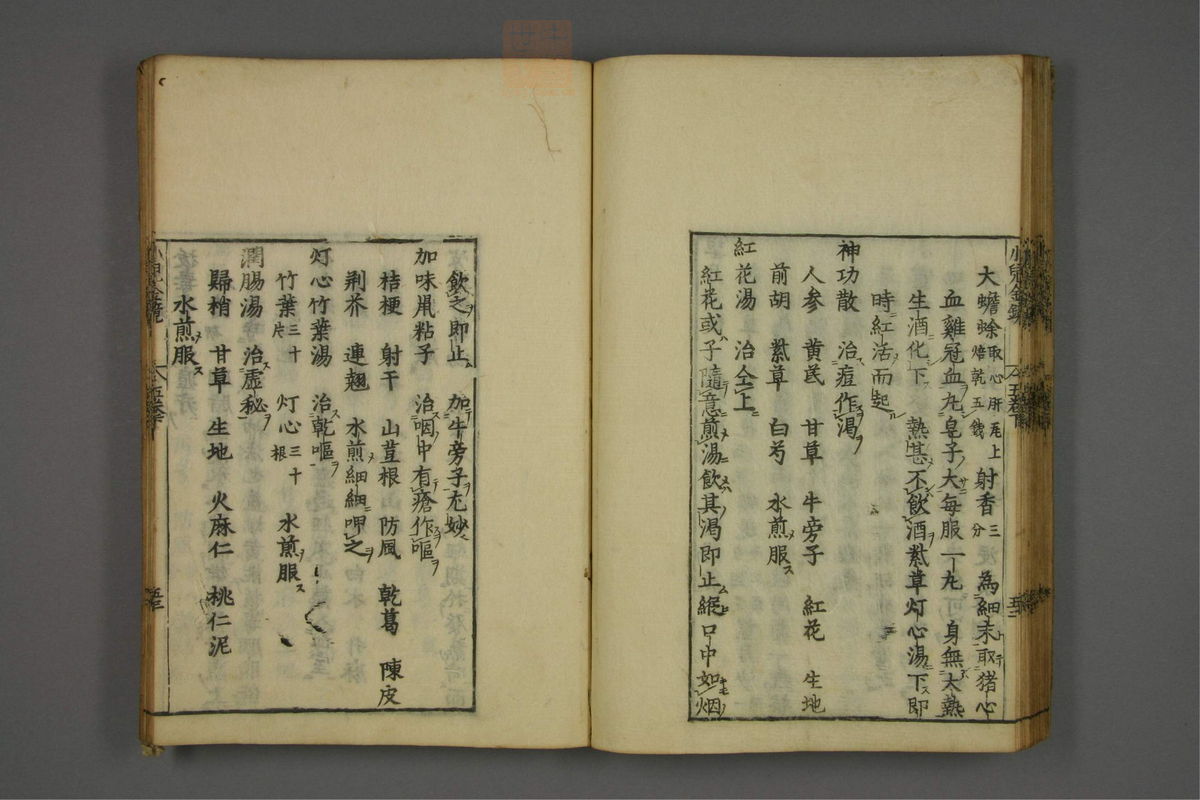 大蟾蜍取心肝尾上焙乾五錢 射香三分 為細末取猪心
血雞冠血丸皂子大每服一丸 身無大熱
生酒化下 熱甚不飲酒紫草灯心湯下即
時紅活而起
神功散 治痘作渴
人参 黄芪 甘草 牛旁子 紅花 生地
前胡 紫草 白芍 水煎服
紅花湯 治仝上
紅花或子隨意煎湯飲其渴即止縱口中如烟
飲之即止 加牛旁子尤妙
加味鼠粘子 治咽中有瘡作嘔
桔梗 射干 山荳根 防風 乾葛 陳皮
荆芥 連翹 水煎細細呷之
灯心竹葉湯 治乾嘔
竹葉三十片 灯心三十根 水煎服
潤腸湯 治虛秘
歸梢 甘草 生地 火麻仁 桃仁泥
水煎服